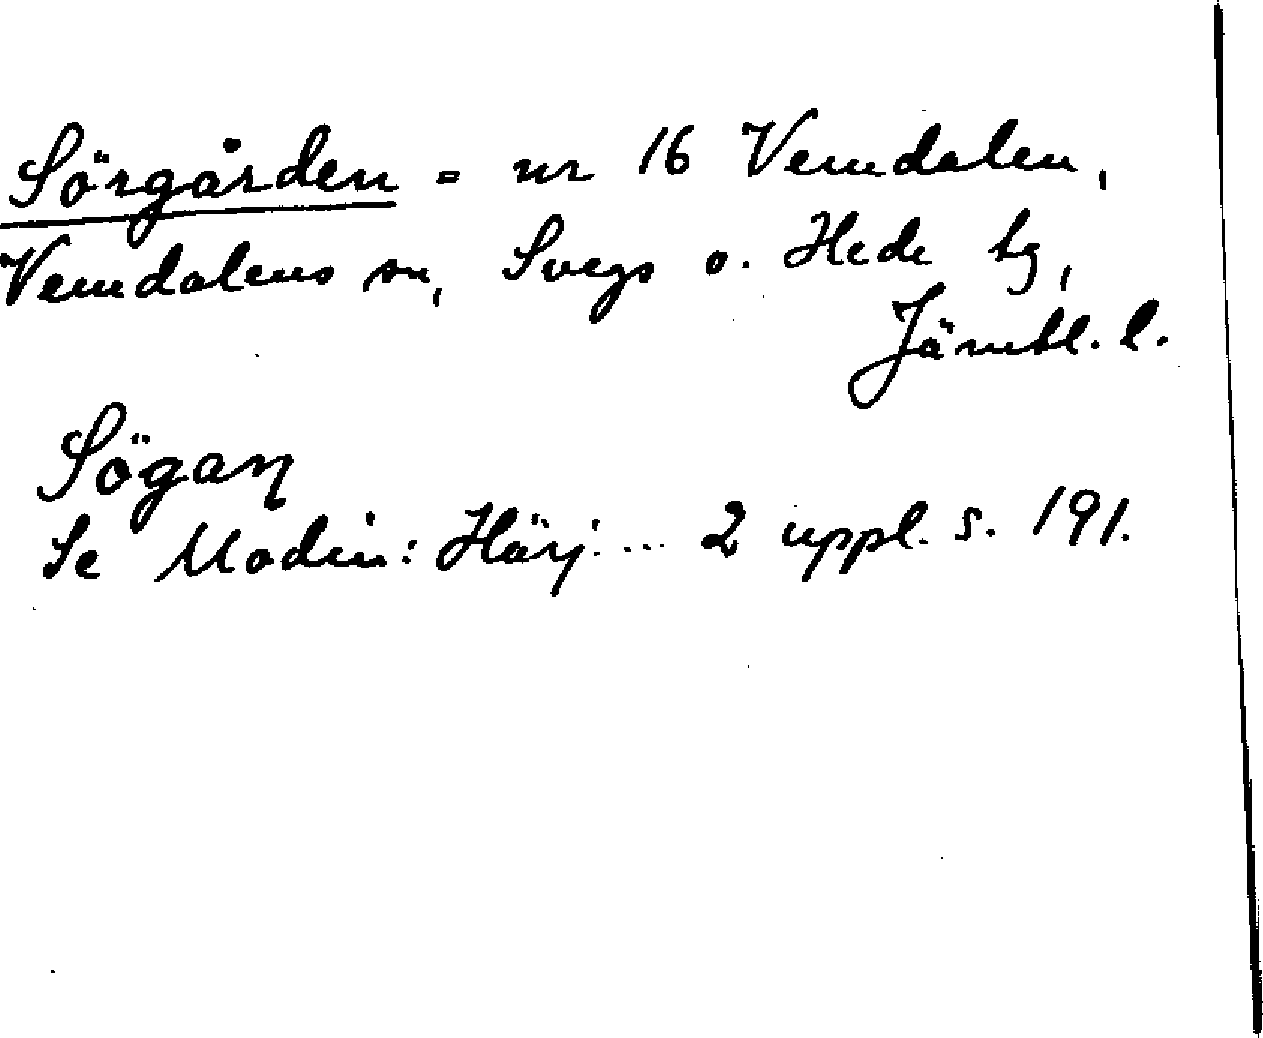 Sörgården = nr 16 Vemdalen,
Vemdalens sn, Svegs o. Hede tg,
Jämtl. l.
Sögaɳ
Se Modin: Härj. ... 2 uppl. s. 191.